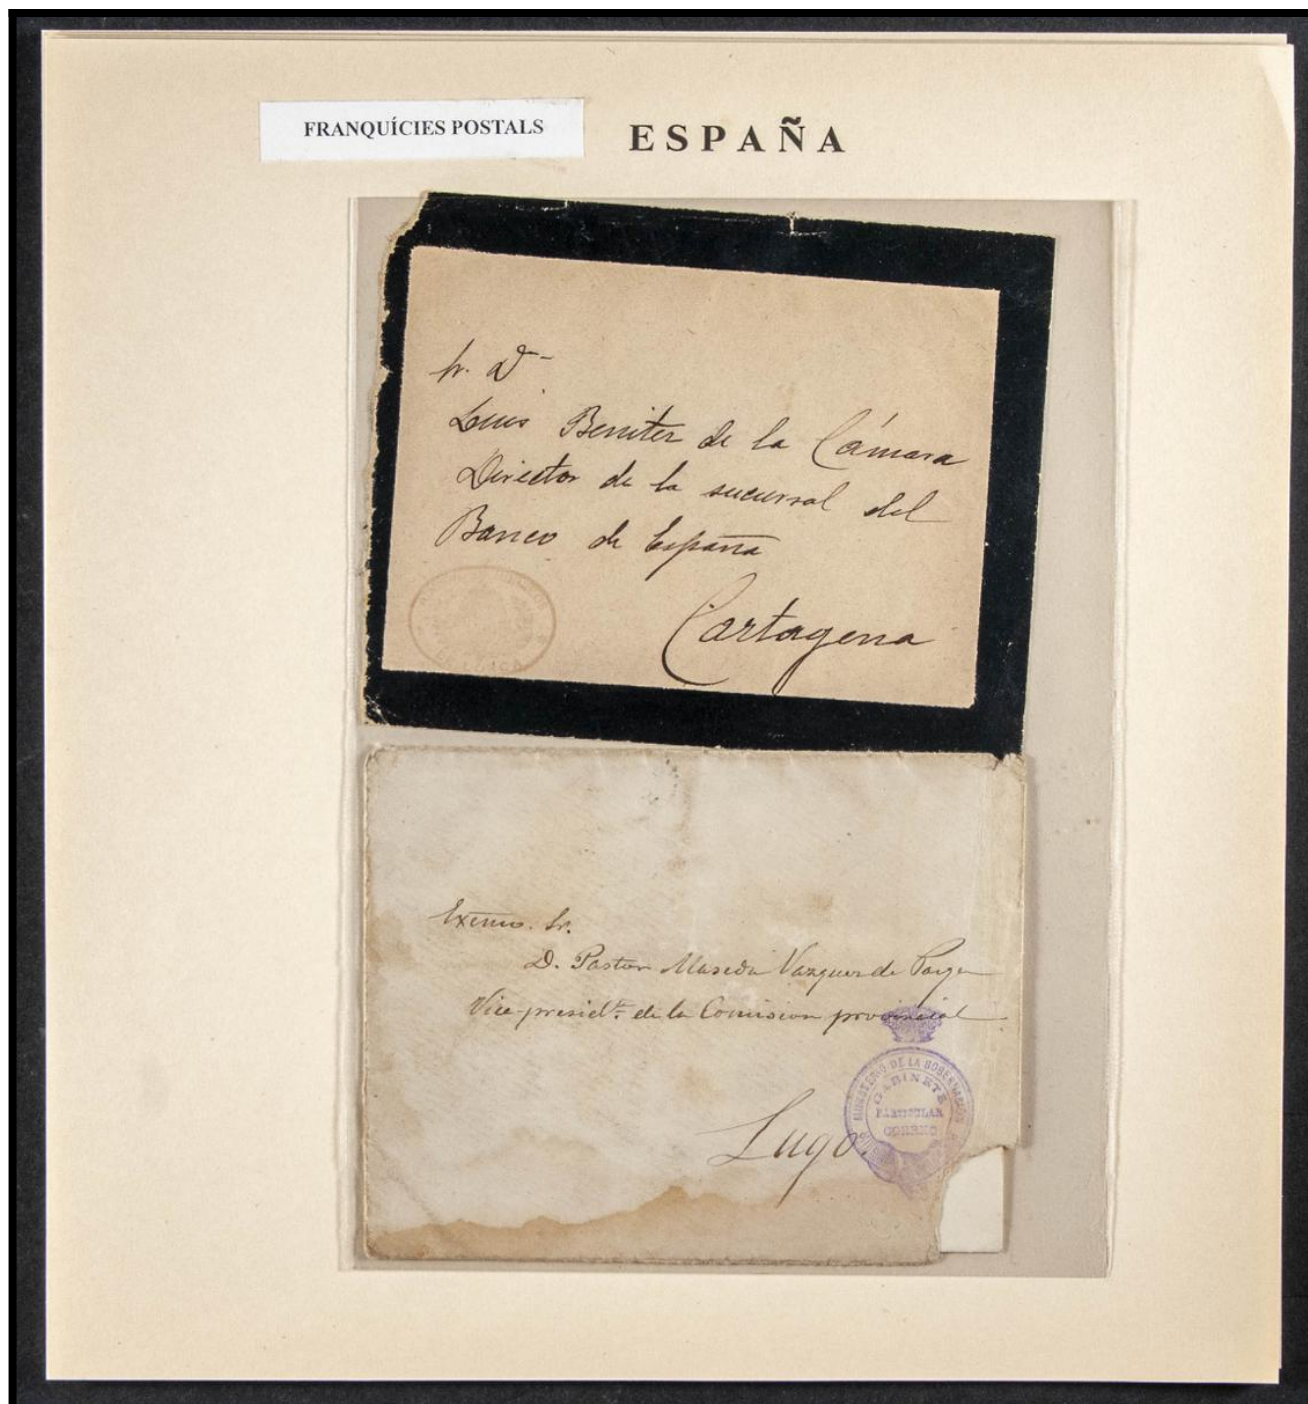 FRANQUÍCIES POSTALS
ESPAÑA
Sr. D
Luis Benitez de la Cámara
Director de la sucursal del
Banco de España
Cartagena
Exemo. Sr.
D. Pastor Maseda Vazquez de Parga
Vice-presidte de la Comision provincial
Lugo.
MINISTERIO DE LA GOBERNACIÓN
GABINETE
PARTICULAR
CORREO